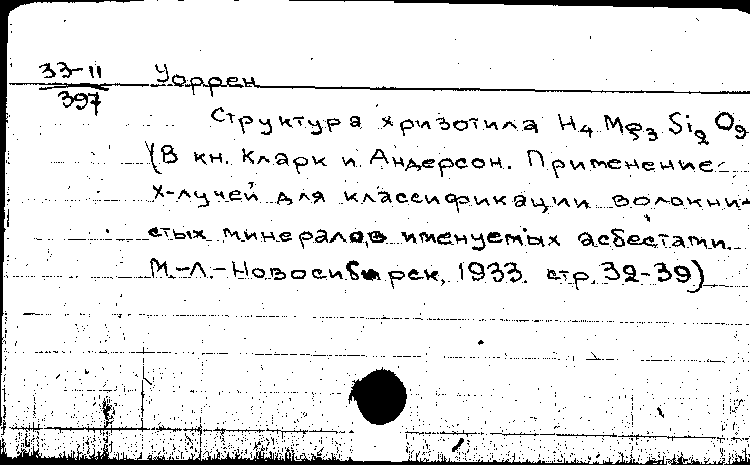 33-11 Уоррен
397
Структура хризотила H4 Mg3 Si2 O9
(В кн. Кларк и Андерсон. Применение
х-лучей для классификации волокни-
стых минералов именуемых асбестами.
М.-Л.-Новосибирск, 1933. стр. 32-39)